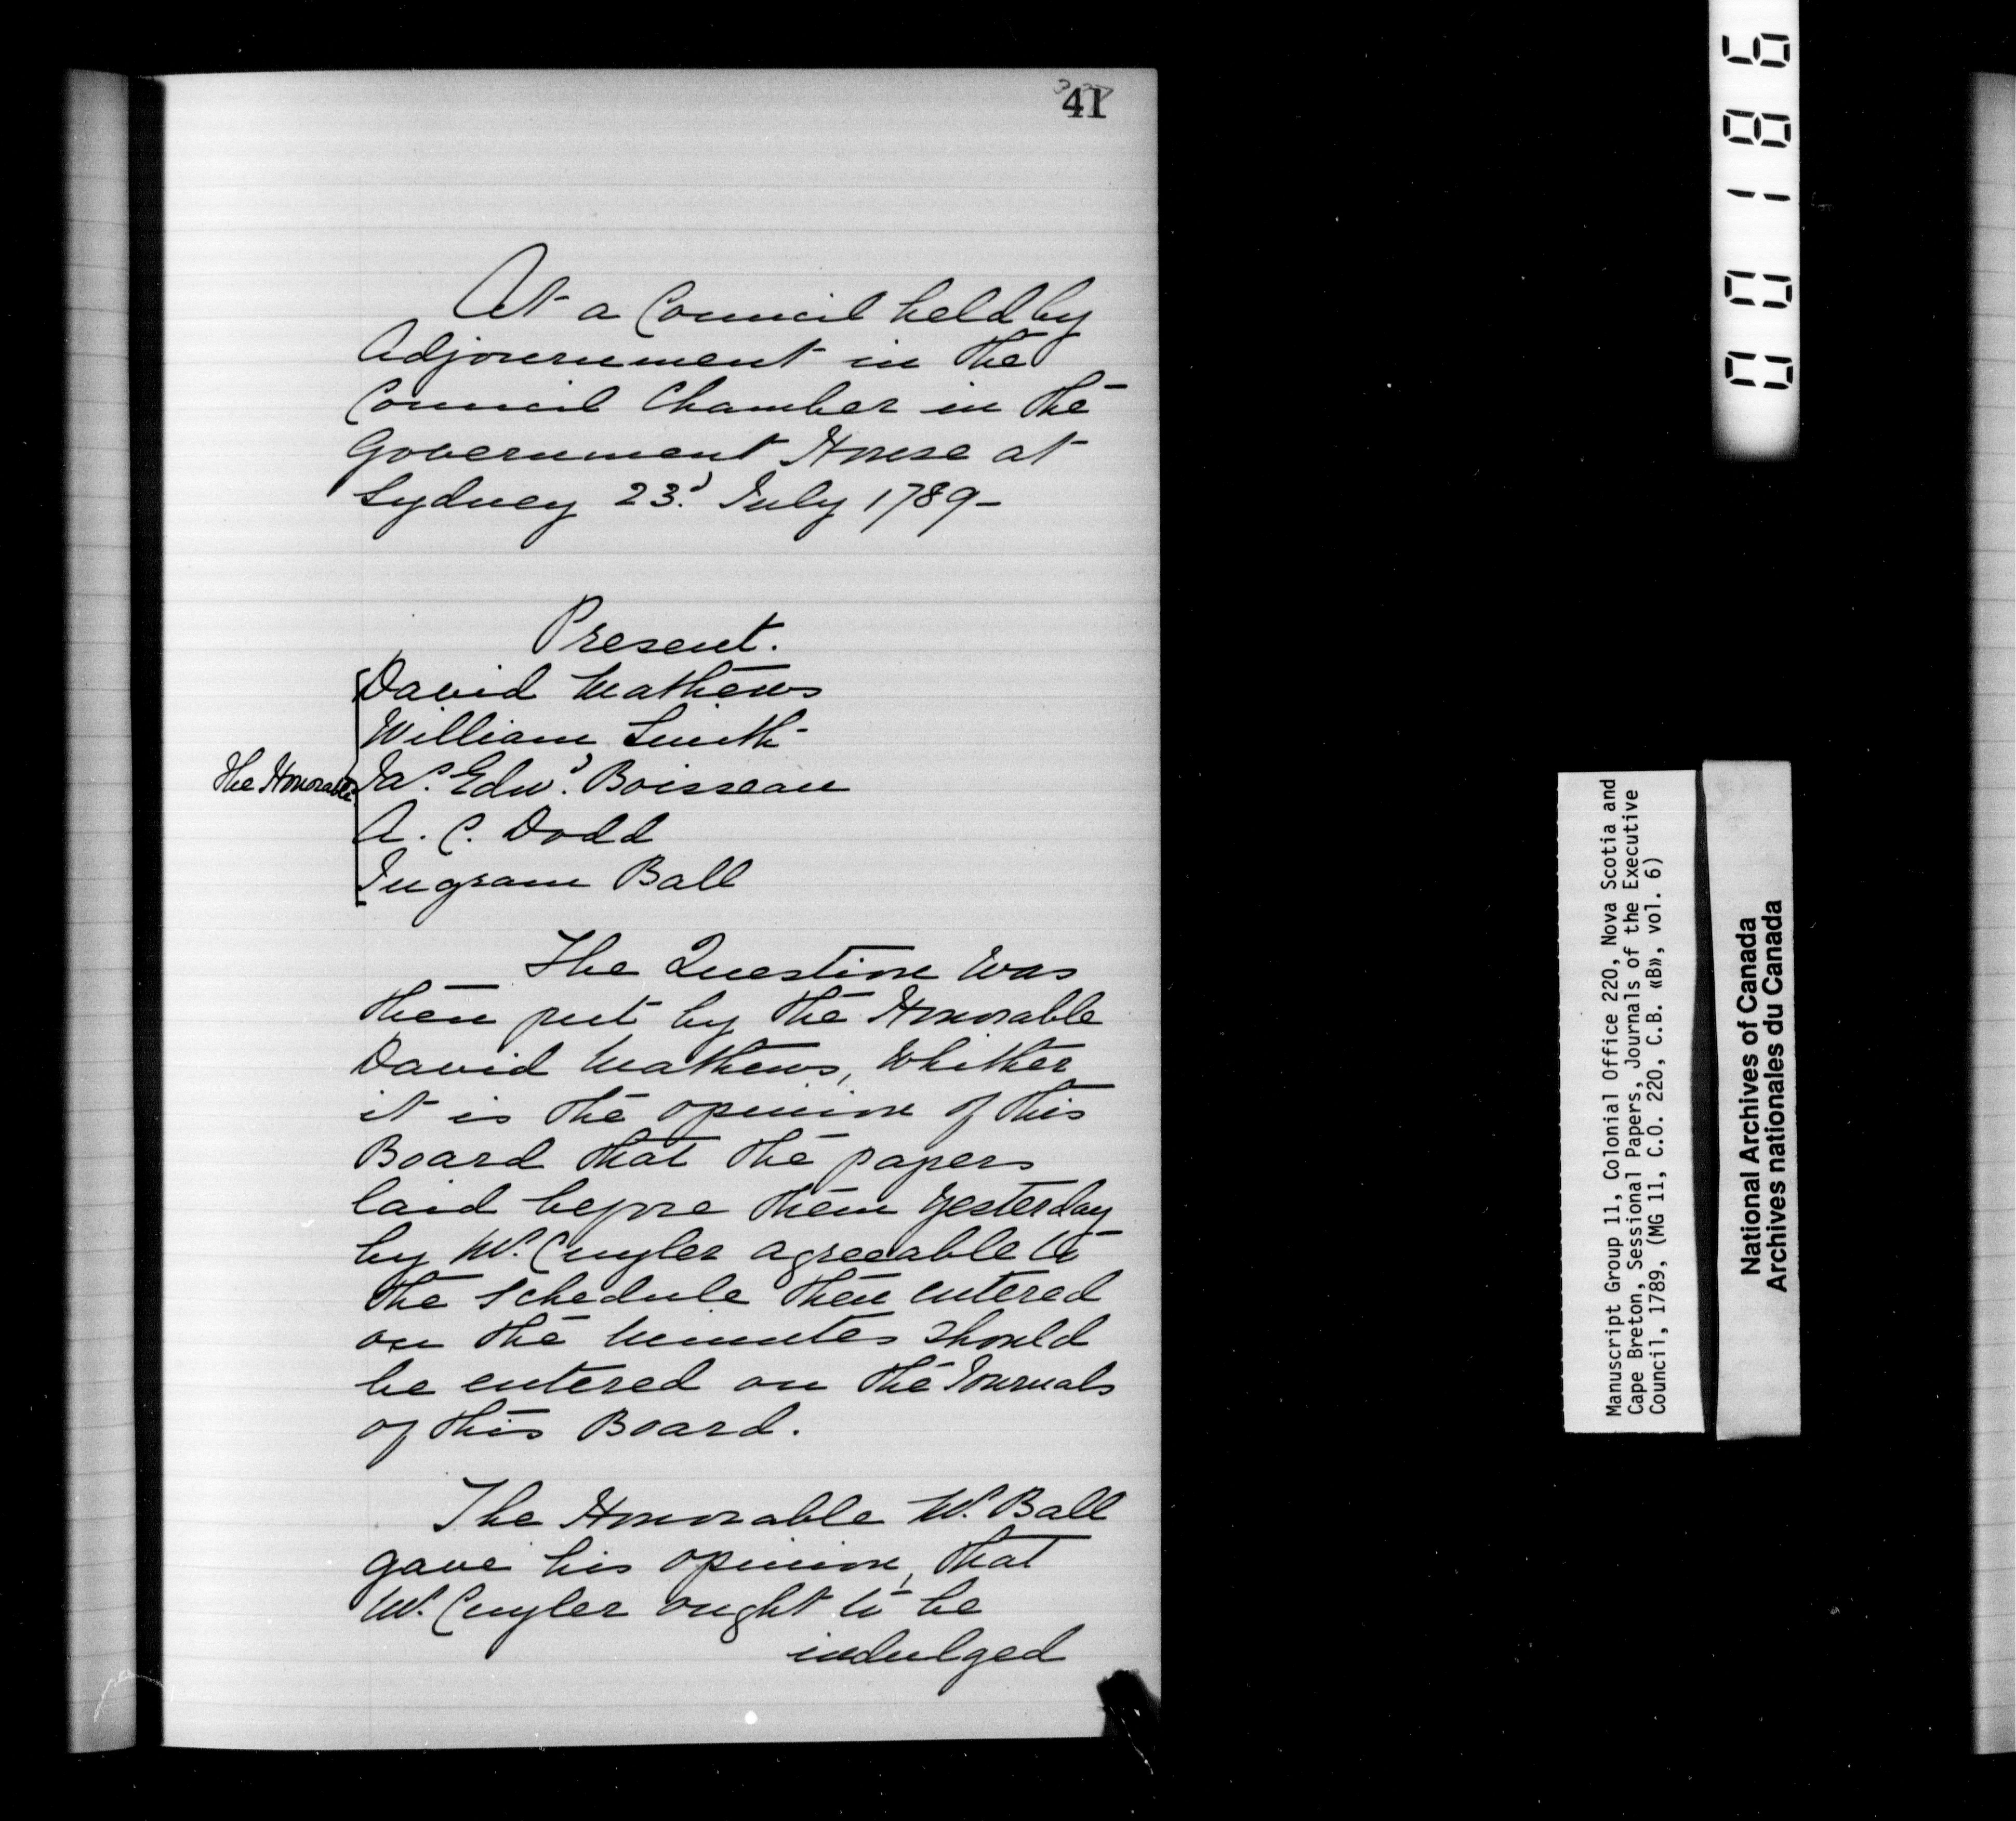 41
At a Council held by
Adjournment in the
Council Chamber in the
Government House at
Sydney 23.d July 1789-
Present.
David Mathews
William Smith
The Honorable
Ja.s Edw.d Boisseau
A. C. Dodd
Ingram Ball
The Question was
then put by the Honorable
David Mathews, Whither
it is the opinion of this
Board that the papers
laid before them yesterday
by Mr. Cuyler agreeable to
the schedule then entered
on the minutes should
be entered on the Journals
of this Board.
The Honorable Mr. Ball
gave his opinion, that
Mr. Cuyler ought to be
indulged
00186
Manuscript Group 11, Colonial Office 220, Nova Scotia and
Cape Breton, Sessional Papers, Journals of the Executive
Council, 1789, (MG 11, C.O. 220, C.B. «B», vol. 6)
National Archives of Canada
Archives nationales du Canada